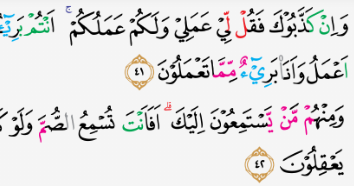 وَاِنْ كَذَّبُوْكَ فَقُلْ لِّيْ عَمَلِيْ وَلَكُمْ عَمَلُكُمْۚ اَنْتُمْ
اَعْمَلُ وَاَنَا۠ بَرِيْۤءٌ مِّمَّا تَعْمَلُوْنَ ٤١
وَمِنْهُمْ مَّنْ يَّسْتَمِعُوْنَ اِلَيْكَۗ اَفَاَنْتَ تُسْمِعُ الصُّمَّ وَلَوْ
يَعْقِلُوْنَ ٤٢